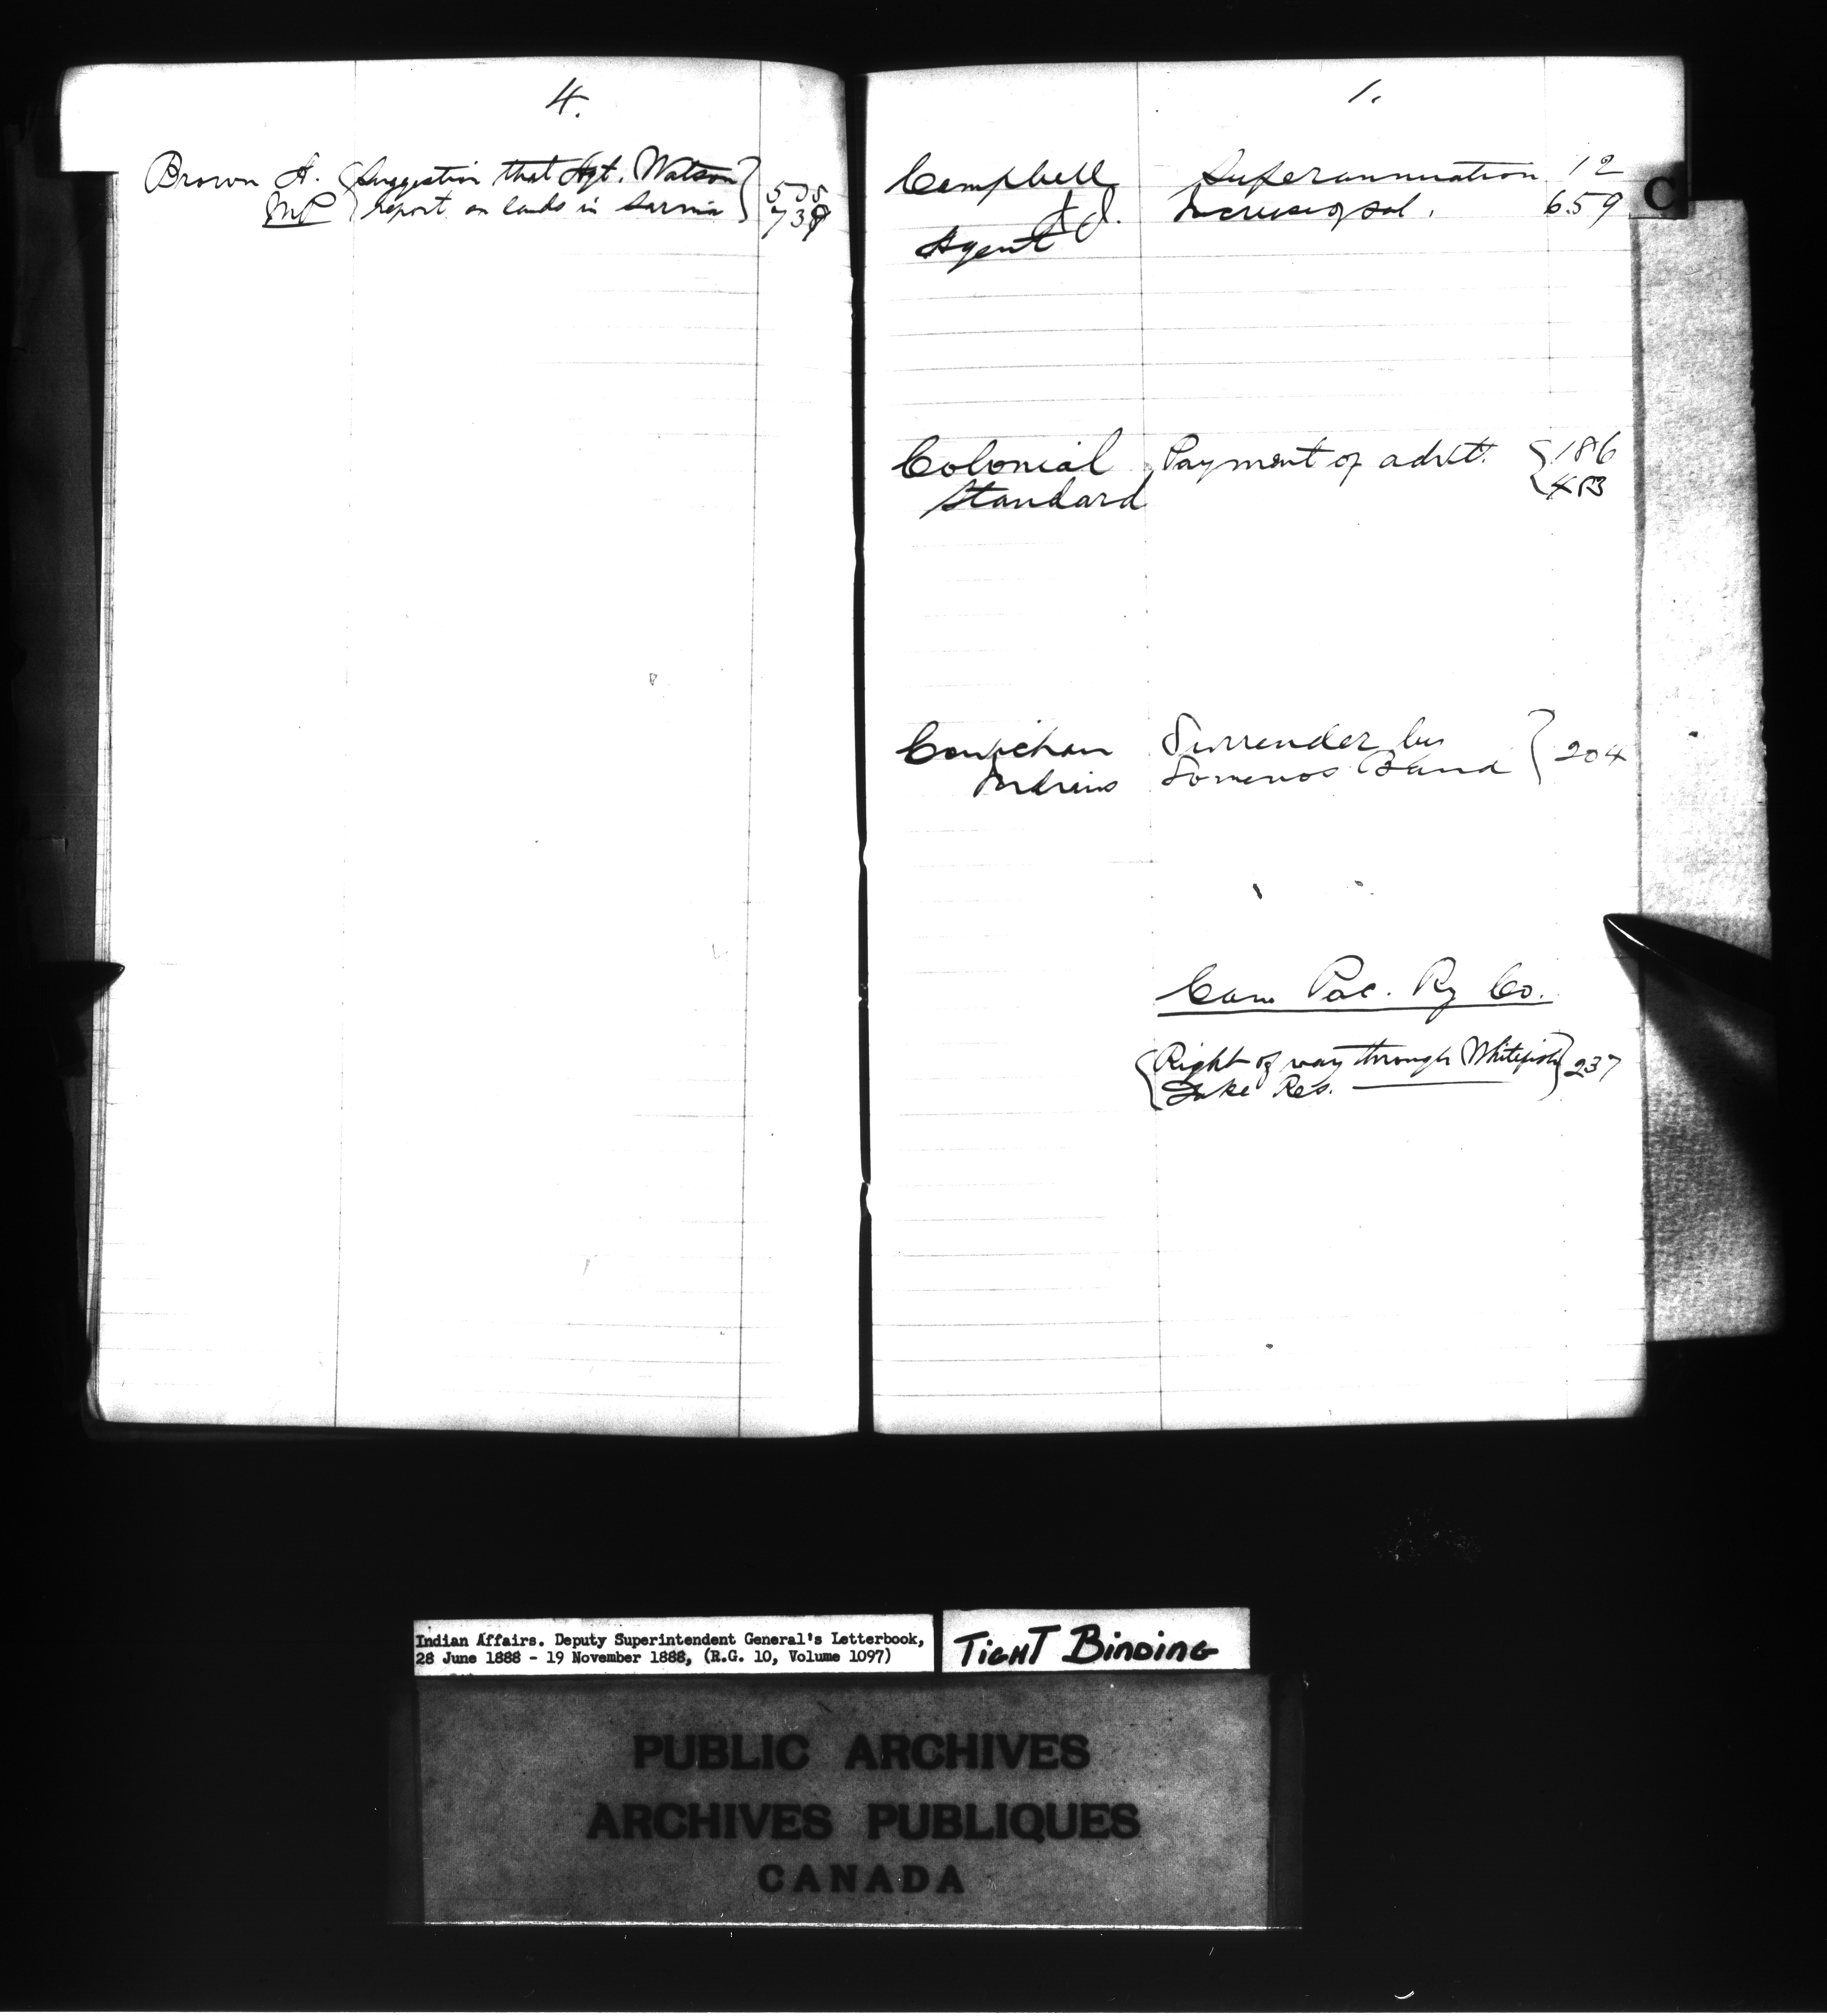 4.
Brown A. Suggestion that Agt. Watson 505
MP report on lands in Sarnia 739
1.
C
Campbell Superannuation 12
J. J. Increase of sal. 659
Agent
Colonial Payment of advtt. 186
Standard 483
Cowichan Surrender by
Indians Somenos Band 204
Can Pac. Ry Co.
Right of way through Whitefish 237
Lake Res.
Indian Affairs. Deputy Superintendent General's Letterbook,
28 June 1888 - 19 November 1888, (R.G. 10, Volume 1097)
TIGHT BINDING
PUBLIC ARCHIVES
ARCHIVES PUBLIQUES
CANADA